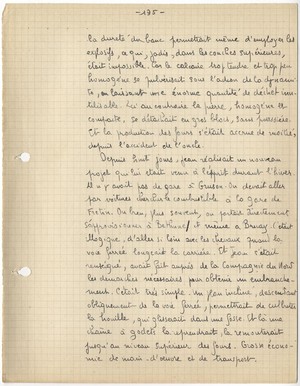 -195-
la dureté du banc permettait même d'employer les
explosifs, ce qui, jadis, dans les couches supérieures,
était impossible. Car la calcaire trop tendre et trop peu
homogène se pulvérisait sous l'action de la dynami-
te, en laissant une énorme quantité de déchet inu-
tilisable. Ici au contraire la pierre, homogène et
compacte, se détachait en gros blocs, sans poussière.
Et la production des fours s'était accrue de moitié
depuis l'accident de l'oncle.
Depuis huit jours, Jean réalisait un nouveau
projet qui lui était venu à l'esprit durant l'hiver.
Il n'y avait pas de gare à Gruson. On devait aller
par voitures chercher le combustible à la gare de
Fretin. Ou bien, plus souvent, on partait directement
s'approvisionner à Béthune, et même à Bruay. C'était
illogique, d'aller si loin avec les chevaux quand la
voie ferrée longeait la carrière. Et Jean s'était
renseigné, avait fait auprès de la Compagnie du Nord
les démarches nécessaires pour obtenir un embranche-
ment. C'était très simple. Un plan incliné, descendant
obliquement de la voie ferrée, permettrait de culbuter
la houille, qui glisserait dans une fosse. Et là une
chaîne à godets la reprendrait, la remonterait
jusqu'au niveau supérieur des fours. Grosse écono-
mie de main-d'œuvre et de transport.